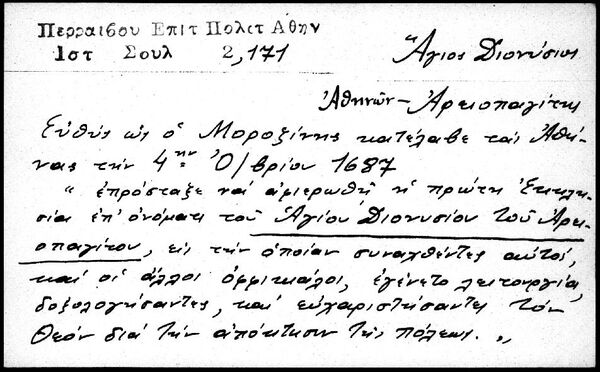 Περραιβου Επιτ Πολιτ Αθην
Ιστ Σουλ 2,171
Ἅγιος Διονύσιος
Ἀθηνῶν - Ἀρειοπαγίτης
Εὐθύς ὡς ὁ Μοροζίνης κατέλαβε τάς Ἀθή-
νας τήν 4ην Ὀ/βρίου 1687
" ἐπρόσταξε νά ἀφιερωθῇ ἡ πρώτη Ἐκκλη-
σία ἐπ' ὀνόματι τοῦ Ἁγίου Διονυσίου τοῦ Ἀρει-
οπαγίτου, εἰς τήν ὁποίαν συναχθέντες αὐτοί,
καί οἱ ἄλλοι ὀφφικιάλοι, ἐγένετο λειτουργία,
δοξολογήσαντες, καί εὐχαριστήσαντες τόν
Θεόν διά τήν ἀπόκτησιν τῆς πόλεως. "